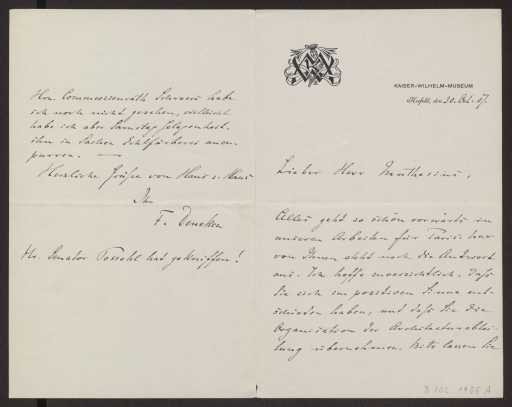 KAISER-WILHELM-MUSEUM
Krefeld, den 30. Okt. 07.
Lieber Herr Muthesius,
Alles geht so schön vorwärts in
unseren Arbeiten für Paris. Nur
von Ihnen steht noch die Antwort
aus. Ich hoffe zuversichtlich, daß
Sie sich im positiven Sinne ent-
schieden haben, und daß Sie die
Organisation der Architekturabtei-
lung übernehmen. Bitte lassen Sie
Hrn. Commerzienrath habe
ich noch nicht gesehen, vielleicht
habe ich aber Samstag Gelegenheit,
ihn in Sachen Echtfärberei anzu-
Herzliche Grüße von Haus z. Haus
Ihr
F. Deneken
Hr. Senator Possehl hat gekniffen!